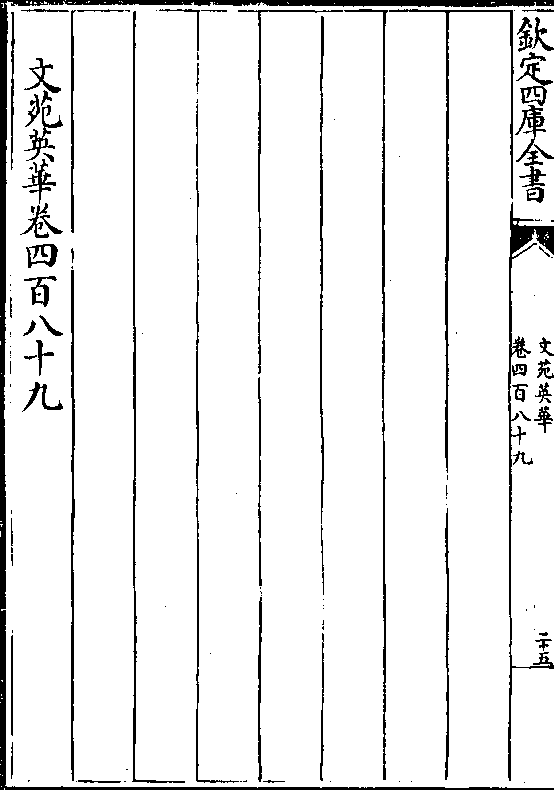 欽定四庫全書
文苑英華
卷四百八十九
二十五
文苑英華卷四百八十九